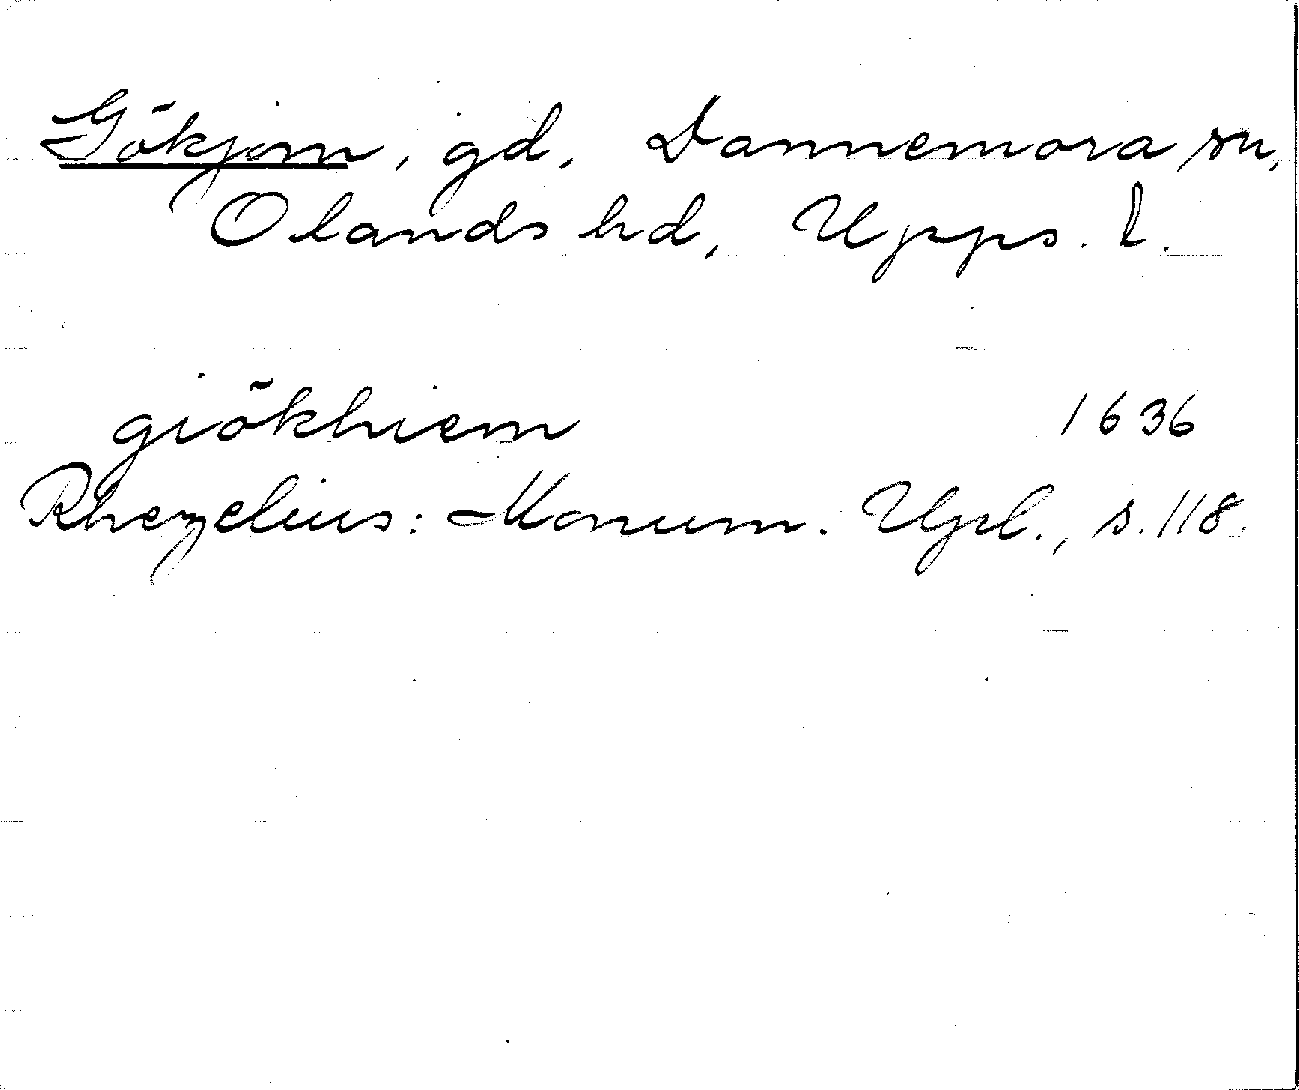 Gökjom, gd, Dannemora sn,
Olands hd, Upps. l.
giökhiem 1636
Rhezelius: Monum. Upl., s. 118.